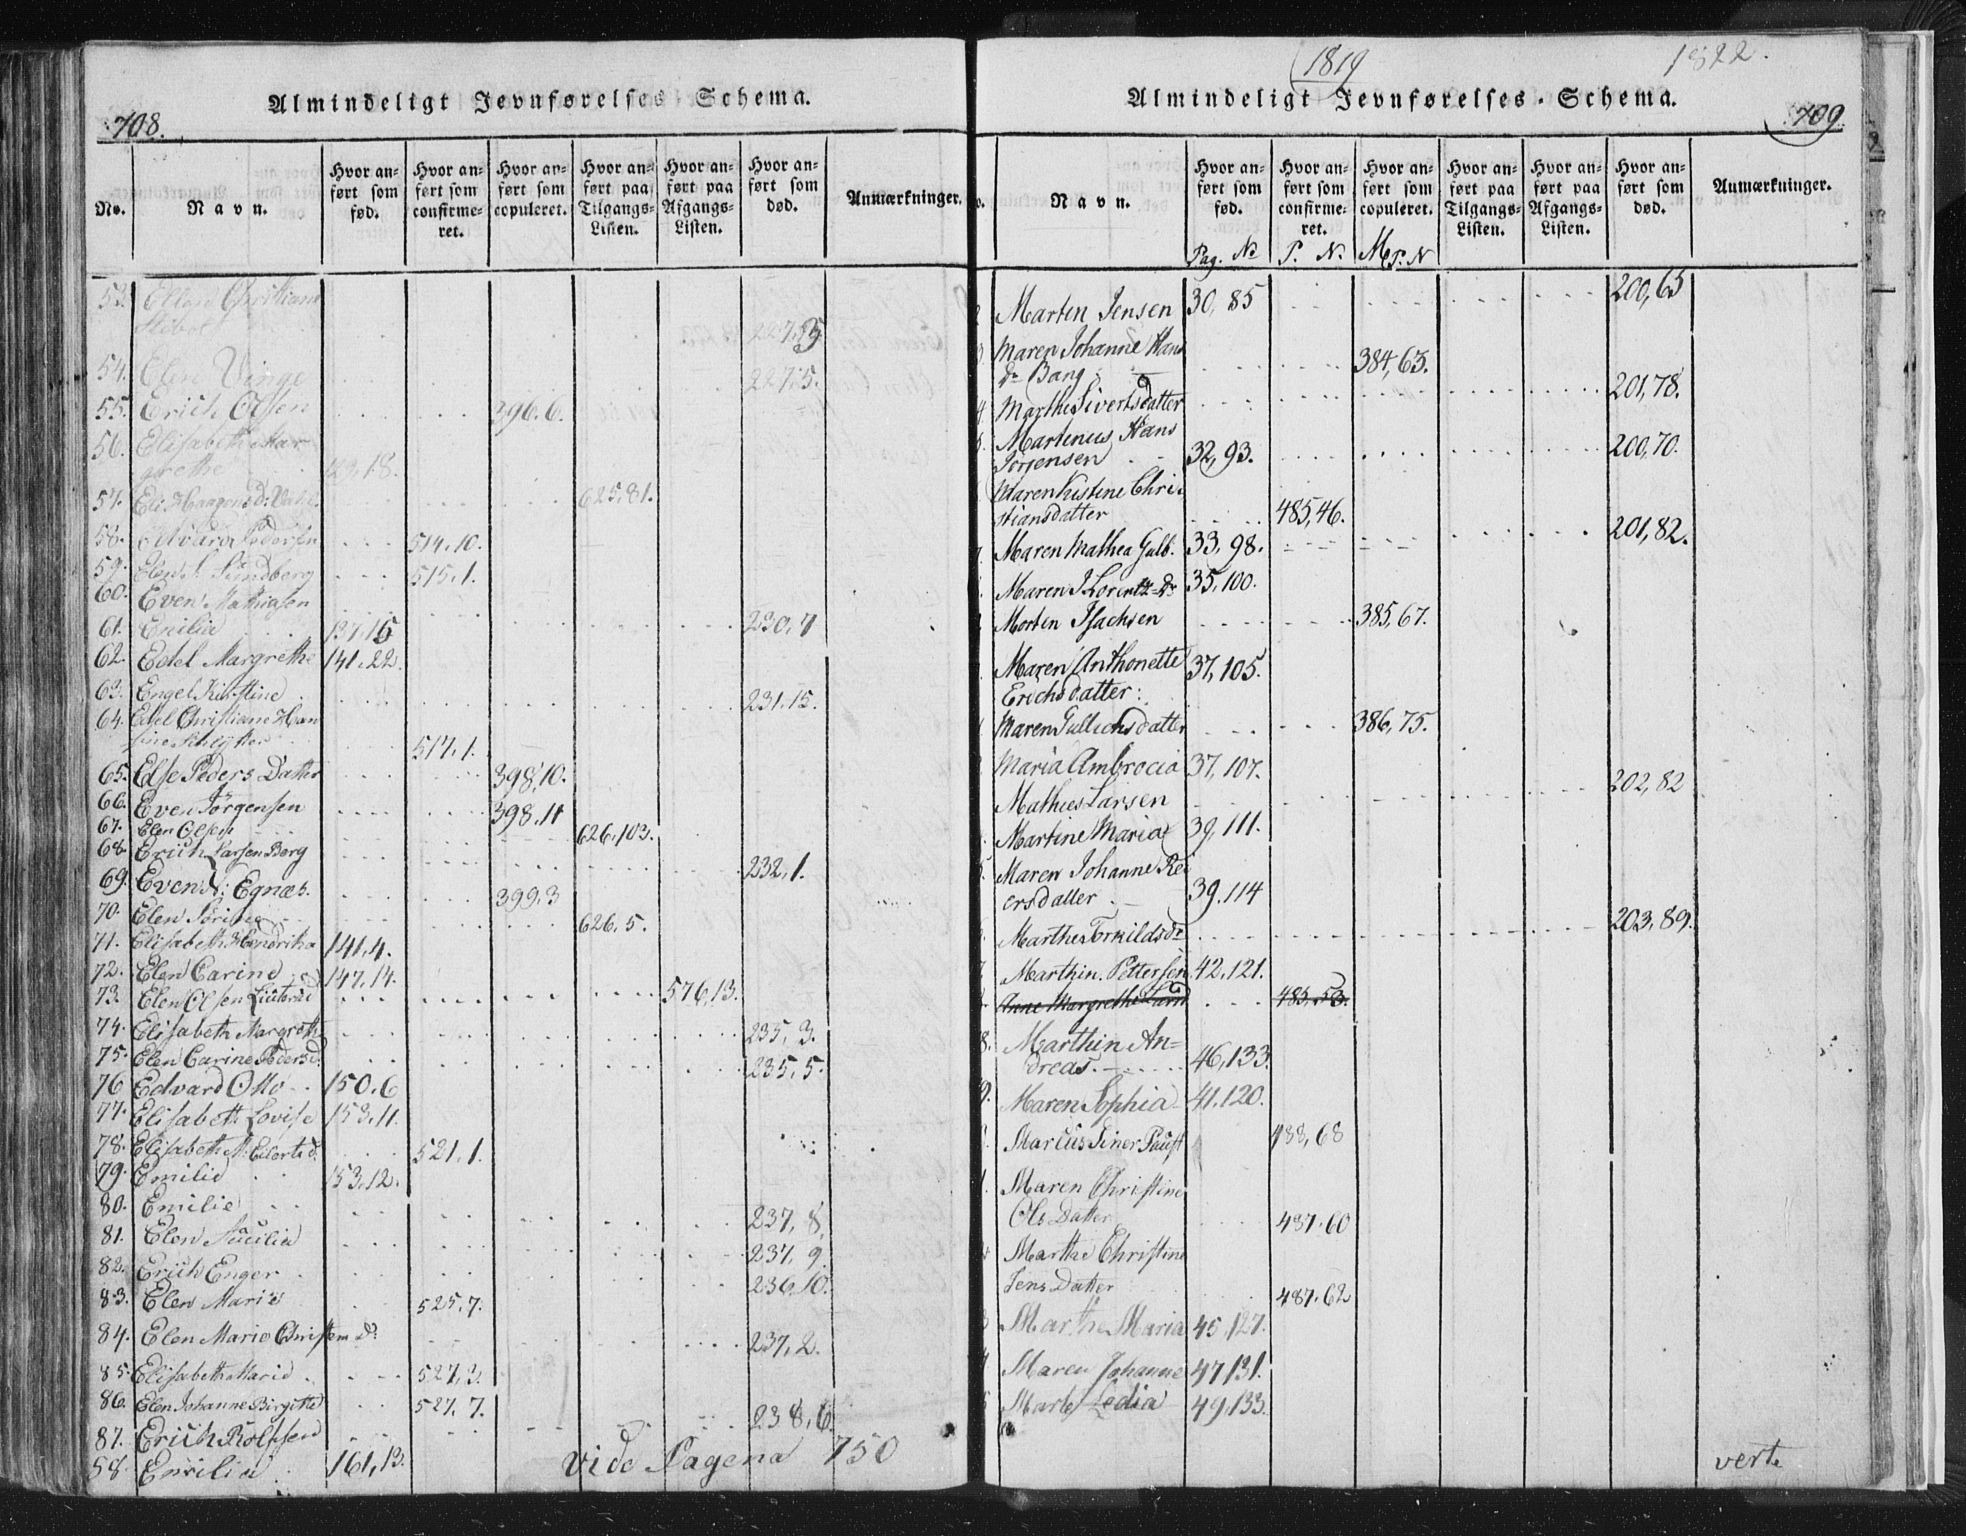 708.
Almindeligt Jevnførelses-Schema.
No.
Navn.
Hvor anført som fød.
Hvor anført som confirmeret.
Hvor anført som copuleret.
Hvor anført paa Tilgangs-Listen.
Hvor anført paa Afgangs-Listen.
Hvor anført som død.
Anmærkninger.
53. Ellen Christiane
54. Elen Vinge 227.5.
55. Erich Olsen 396.6.
56. Elisabeth Mar
grethe 129.18.
57. Eli Haagensd: 625,81.
58. Edvard Pedersen 514.10.
59. Elen Sundberg 515.1.
60. Even Mathiasen 230,7
61. Emilia 137.15
62. Edel Margrethe 141.22.
63. Engel Kirstine 231.15.
64. Edel Christiane Han
sine 517.1.
65. Else Peders Datter 398,10.
66. Even Jörgensen 398.11
67. Elen Olsen 626,103.
68. Erich Larsen Berg 232,1.
69. Even N: Egnæs. 399.3
70. Elen 626,5.
71. Elisabeth Hendrika 141.4.
72. Elen Carine 147,14.
73. Elen Olsen 576,13.
74. Elisabeth Margreth 235,3.
75. Elen Carine Pedersd. 235,5.
76 Edvard Otto 150.6
77. Elisabeth Lovise 153,11.
78. Elisabeth M: Eilertsd. 521.1.
79. Emilie 153,12.
80. Emilie 237,8.
81. Elen 237,9.
82. Erich Enger 236,10.
83. Elen Marie 525,7.
84. Elen Marie Christen D: 237,2.
85. Elisabeth Marie 527,3.
86. Elen Johanne Birgitte 527,7.
87. Erich Rolfsen 238,6
58. Emilia 161,13.
Vide Pagena 750
1819
1822.
Almindeligt Jevnførelses-Schema.
709
Navn.
Hvor anført som fød.
Hvor anført som confirmeret.
Hvor anført som copuleret.
Hvor anført paa Tilgangs-Listen.
Hvor anført paa Afgangs-Listen.
Hvor anført som død.
Anmærkninger.
Pag. No P. N. P. N
Marten Jensen 30,85 200,65
Maren Johanne Hans
Dr Bang 384,63.
Marthe Sivertsdatter 201,78.
Martinus Hans
Jörjensen 32,93. 200,70.
Maren Kistine Chri
stiansdatter 485,46.
Maren Mathea Gulb. 33,98. 201,82.
Maren J Lorentz Dr 35,100.
Morten Isachsen 385,67.
Maren Anthonette 37,105.
Erichsdatter:
Maren Gullichsdatter 386,75.
Maria Ambrocia 37,107.
Mathies Larsen 202,82
Martine Maria 39,111.
Maren Johanne Re
ersdatter 39.114
Marthe Torkildsdr 203,89.
Marthin Pettersen 42,121.
Anne Margrethe Lund 485,53.
8. Marthin An=
dreas 46,133.
9. Maren Sophia 41.120.
Marcus 488,68
Maren Christine
Ols Datter 487.60
Marthe Christine
Jens Datter 487.62
Marthe Maria 45,127.
Maren Johanne 47,131.
Marte Ledia 49,133.
verte